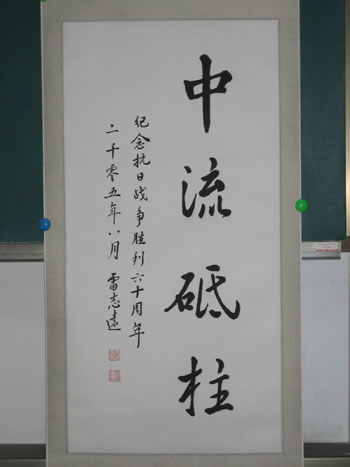 中流砥柱
纪念抗日战争胜利六十周年
二千零五年八月 雷志远